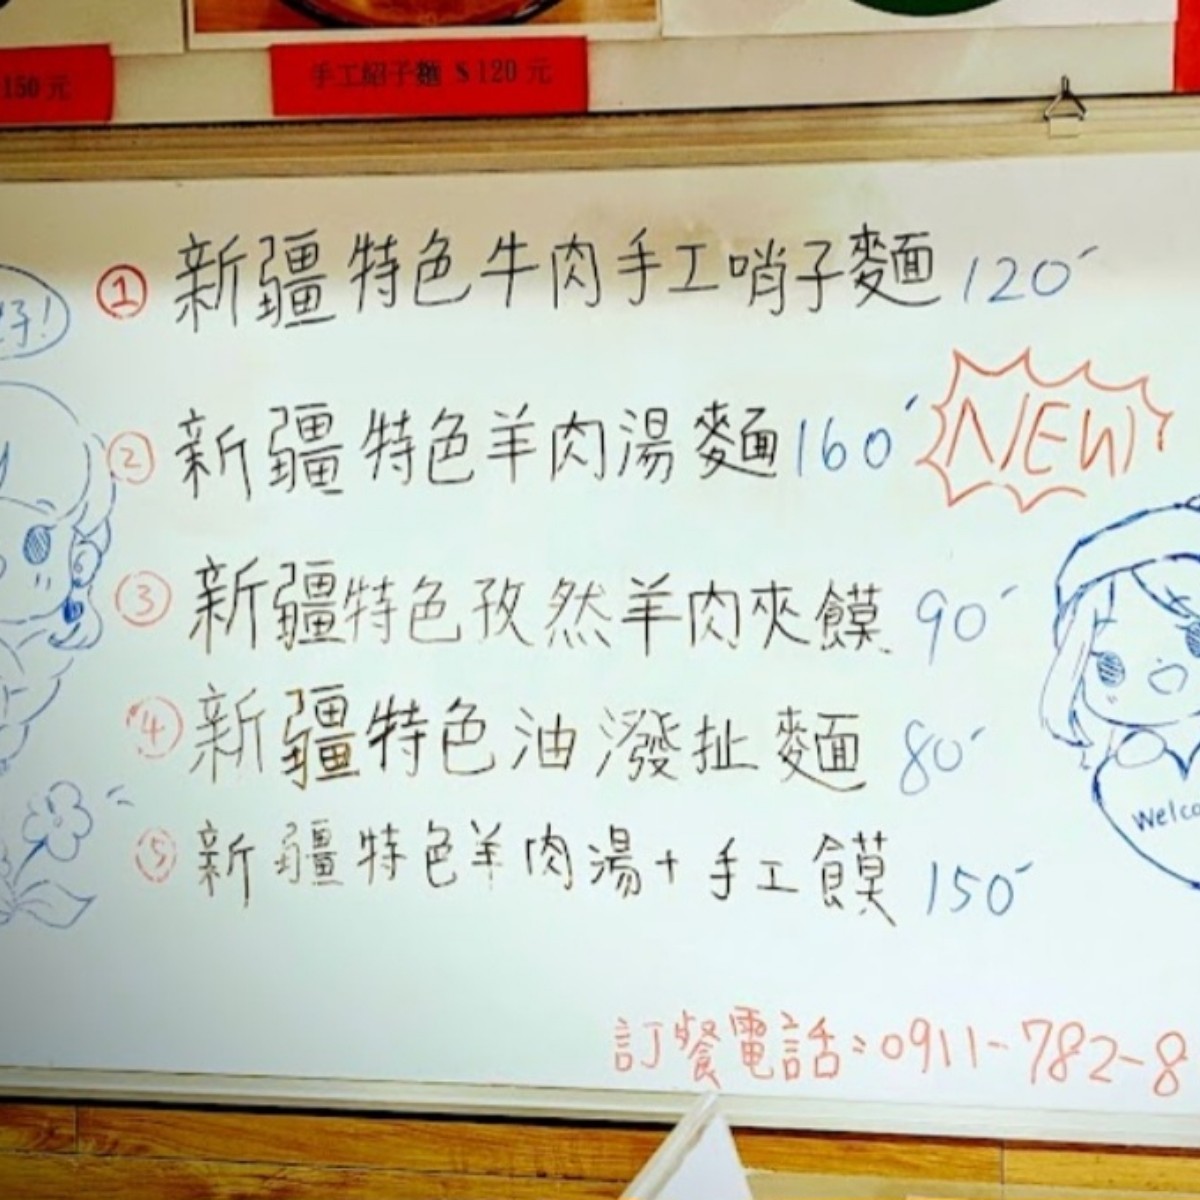 150元
手工紹子麵 $120元
好!
① 新疆特色牛肉手工哨子麵 120
② 新疆特色羊肉湯麵 160 NEW
③ 新疆特色孜然羊肉夾饃 90
④ 新疆特色油潑扯麵 80
⑤ 新疆特色羊肉湯+手工饃 150
Welco
訂餐電話:0911-782-8